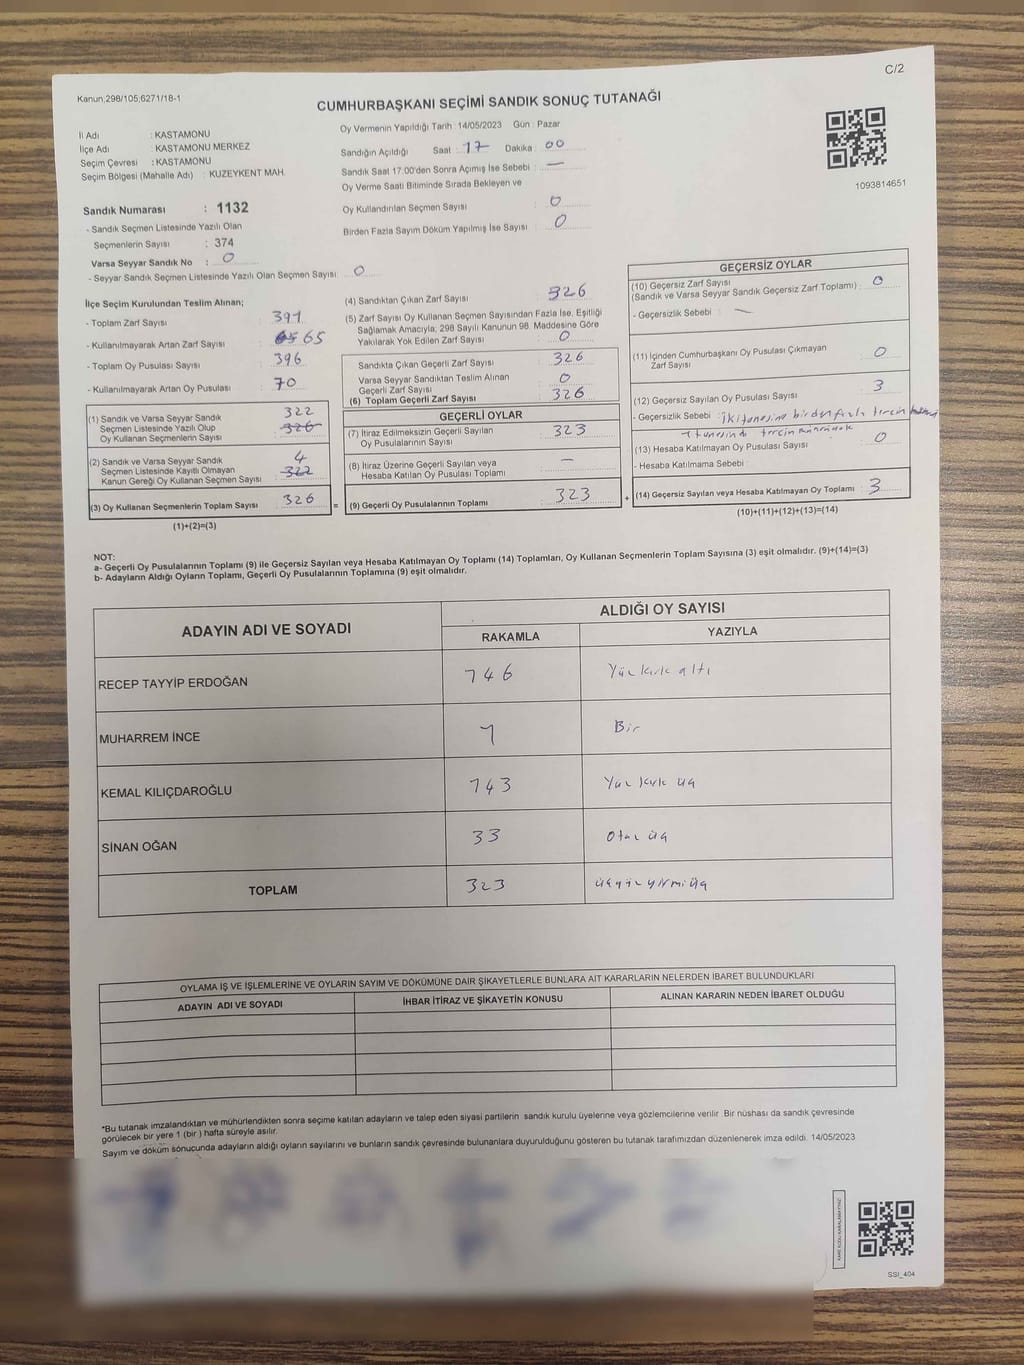 C/2
Kanun;298/105;6271/18-1
CUMHURBAŞKANI SEÇİMİ SANDIK SONUÇ TUTANAĞI
İl Adı : KASTAMONU
İlçe Adı : KASTAMONU MERKEZ
Seçim Çevresi : KASTAMONU
Seçim Bölgesi (Mahalle Adı) : KUZEYKENT MAH.
Oy Vermenin Yapıldığı Tarih :14/05/2023 Gün : Pazar
Sandığın Açıldığı Saat : 17 Dakika : 00
Sandık Saat 17:00'den Sonra Açımış İse Sebebi : —
Oy Verme Saati Bitiminde Sırada Bekleyen ve
Oy Kullandırılan Seçmen Sayısı : 0
Birden Fazla Sayım Döküm Yapılmış İse Sayısı : 0
1093814651
Sandık Numarası : 1132
- Sandık Seçmen Listesinde Yazılı Olan
Seçmenlerin Sayısı : 374
Varsa Seyyar Sandık No : 0
- Seyyar Sandık Seçmen Listesinde Yazılı Olan Seçmen Sayısı : 0
İlçe Seçim Kurulundan Teslim Alınan;
- Toplam Zarf Sayısı : 391
- Kullanılmayarak Artan Zarf Sayısı : 65
- Toplam Oy Pusulası Sayısı : 396
- Kullanılmayarak Artan Oy Pusulası : 70
(1) Sandık ve Varsa Seyyar Sandık
Seçmen Listesinde Yazılı Olup
Oy Kullanan Seçmenlerin Sayısı : 322
326
(2) Sandık ve Varsa Seyyar Sandık
Seçmen Listesinde Kayıtlı Olmayan
Kanun Gereği Oy Kullanan Seçmen Sayısı : 4
322
(3) Oy Kullanan Seçmenlerin Toplam Sayısı : 326
(1)+(2)=(3)
(4) Sandıktan Çıkan Zarf Sayısı : 326
(5) Zarf Sayısı Oy Kullanan Seçmen Sayısından Fazla İse, Eşitliği
Sağlamak Amacıyla; 298 Sayılı Kanunun 98. Maddesine Göre
Yakılarak Yok Edilen Zarf Sayısı : 0
Sandıkta Çıkan Geçerli Zarf Sayısı : 326
Varsa Seyyar Sandıktan Teslim Alınan
Geçerli Zarf Sayısı : 0
(6) Toplam Geçerli Zarf Sayısı : 326
GEÇERLİ OYLAR
(7) İtiraz Edilmeksizin Geçerli Sayılan
Oy Pusulalarının Sayısı : 323
(8) İtiraz Üzerine Geçerli Sayılan veya
Hesaba Katılan Oy Pusulası Toplamı : —
(9) Geçerli Oy Pusulalarının Toplamı : 323
GEÇERSİZ OYLAR
(10) Geçersiz Zarf Sayısı
(Sandık ve Varsa Seyyar Sandık Geçersiz Zarf Toplamı) : 0
- Geçersizlik Sebebi : —
(11) İçinden Cumhurbaşkanı Oy Pusulası Çıkmayan
Zarf Sayısı : 0
(12) Geçersiz Sayılan Oy Pusulası Sayısı : 3
- Geçersizlik Sebebi : iki tanesine birden fazla tercih
1 tanesinde tercih
(13) Hesaba Katılmayan Oy Pusulası Sayısı : 0
- Hesaba Katılmama Sebebi :
(14) Geçersiz Sayılan veya Hesaba Katılmayan Oy Toplamı : 3
(10)+(11)+(12)+(13)=(14)
NOT:
a- Geçerli Oy Pusulalarının Toplamı (9) ile Geçersiz Sayılan veya Hesaba Katılmayan Oy Toplamı (14) Toplamları, Oy Kullanan Seçmenlerin Toplam Sayısına (3) eşit olmalıdır. (9)+(14)=(3)
b- Adayların Aldığı Oyların Toplamı, Geçerli Oy Pusulalarının Toplamına (9) eşit olmalıdır.
ADAYIN ADI VE SOYADI ALDIĞI OY SAYISI
RAKAMLA YAZIYLA
RECEP TAYYİP ERDOĞAN 146 Yüz kırk altı
MUHARREM İNCE 1 Bir
KEMAL KILIÇDAROĞLU 143 Yüz kırk üç
SİNAN OĞAN 33 Otuz üç
TOPLAM 323 üçyüz yirmi üç
OYLAMA İŞ VE İŞLEMLERİNE VE OYLARIN SAYIM VE DÖKÜMÜNE DAİR ŞİKAYETLERLE BUNLARA AİT KARARLARIN NELERDEN İBARET BULUNDUKLARI
ADAYIN ADI VE SOYADI İHBAR İTİRAZ VE ŞİKAYETİN KONUSU ALINAN KARARIN NEDEN İBARET OLDUĞU
*Bu tutanak imzalandıktan ve mühürlendikten sonra seçime katılan adayların ve talep eden siyasi partilerin sandık kurulu üyelerine veya gözlemcilerine verilir. Bir nüshası da sandık çevresinde
görülecek bir yere 1 (bir ) hafta süreyle asılır.
Sayım ve döküm sonucunda adayların aldığı oyların sayılarını ve bunların sandık çevresinde bulunanlara duyurulduğunu gösteren bu tutanak tarafımızdan düzenlenerek imza edildi. 14/05/2023
KARE KODU KARALAMAYINIZ
SSI_404